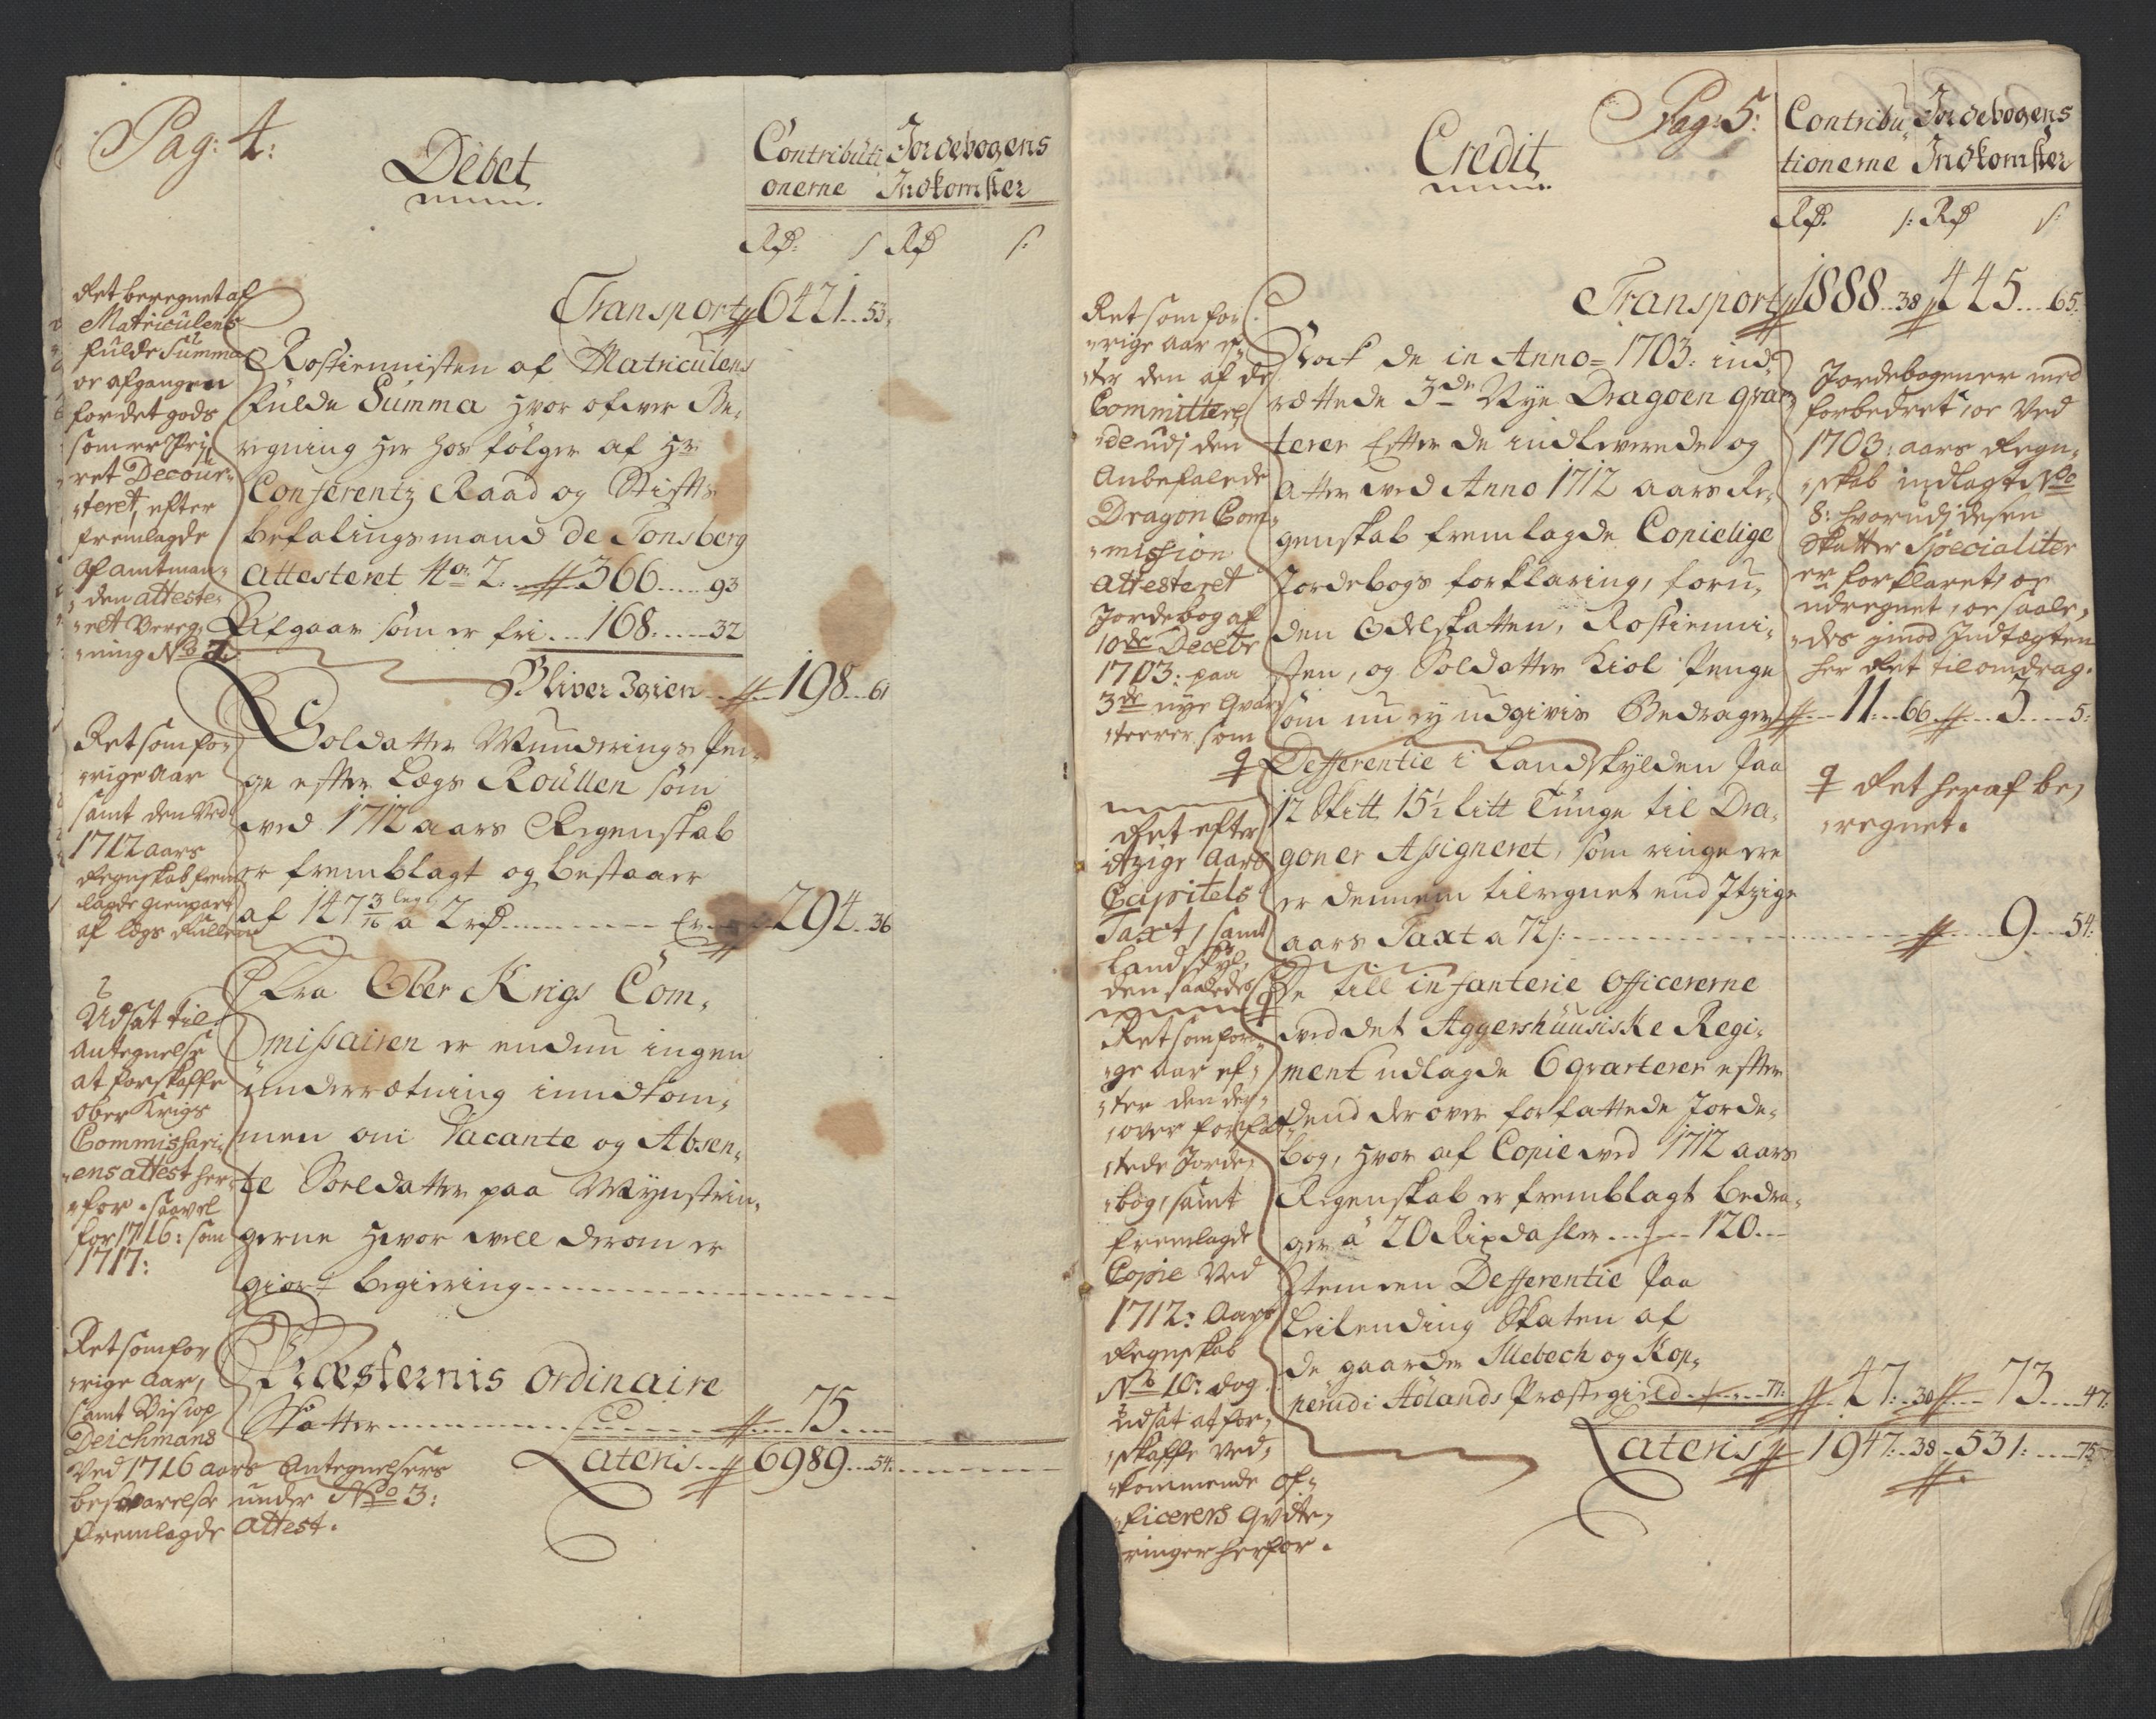 Pag: 4:
Debet
Contributi
onerne
Jordebogens
Indkomster
Rd: s Rd s:
Transport 6421..53.
Rostiennisten af Matriculens
fulde Summa hvor ofver Be-
regning her hos følger af Hr
Conferentz Raad og Stifts
befalingsmand de Tonsberg
Attesteret No 2. 366.....93
Afgaar som er fri...168.....32
Bliver igien..198..61
Soldatter Munderings Pen-
ge efter Lægs Roullen som
ved 1712 aars Regenskab
er fremblagt og bestaaer
af 147 3/16 leg a 2 rd......294..36
Fra Ober Krigs Com-
missairen er endnu ingen
underrætning inndkom-
men om Vacante og Absen-
te Soeldatter paa Mynstrin-
gerne hvor vell derom er
giort begiering
Præsternis ordinaire
Skatter 75
Lateris 6989..54
Ret beregnet af
Matriculens
fulde Summa
og afgangen
for det gods
som er fri
ret Decour-
teret, efter
fremlagde
af amtman-
den atteste-
ret Bereg-
ning No 2.
Ret som for-
rige Aar
samt den Ved
1712 aars
Regnskab frem
lagde gienpart
af lægs Rullen
Udsat til
Antegnelse
at forskaffe
Ober Krigs
Commissari-
ens attest her-
for saavel
for 1716: som
1717:
Ret som for
rige Aar,
samt Bisiop
Deichmans
Ved 1716 aars Antegnelsers
besvarelse under No 3:
fremlagde Attest.
Pag: 5:
Credit
Contribu-
tionerne
Jordebogens
Indkomster
Rd. s: Rd s:
Transport 1888..38 445....65.
Nock de in Anno 1703: ind-
rættede 3de Nye Dragoen qvar-
terer Efter de indleverede og
atter ved Anno 1712 aars Re-
genskab fremlagde Copielige
Jordebogs forklaring, foru-
den Odelskatten, Rostienni-
sten, og Soldatter Kiol Penge
som nu ey udgivis Bedrager 11...66 5....5:
Defferentie i Landskylden Paa
12 Skitt 15½ Litt Tunge til Dra-
goner Assigneret, som ringere
er dennem tilregnet end Itzige
aars Taxt a 72 s: 9...54:
De till infanterie Officererne
ved det Aggershuusiske Regi-
ment udlagde 6 qvarterer efter
dend derover forfattede Jorde-
bog, hvor af Copie ved 1712 aars
Regenskab er fremblagt bedra-
ger a 20 Rixdahler......120...
Item en Defferentie Paa
Leilending Skaten af
de gaarder Mebech og Kop-
perud i Hølands Præstegield....77: 47:..30 73....47:
Lateris 1947:..38..531:....75
Ret som for
rige aar ef-
ter den af de
Committere-
de udj den
Anbefalede
Dragon Com-
mission
attesteret
Jordebog af
10de Decebr
1703: paa
3de nye Qvar-
teerer som
Ret efter
itzige Aars
Capitels
Taxt, samt
Landskyl-
den saaledes
Ret som forri-
ge Aar ef-
ter den der-
over forfat-
tede Jorde-
bog, samt
fremlagde
Copie Ved
1712: Aars
Regnskab
No 10: dog
udsat at for-
skaffe ved-
kommende Of-
ficerers qvitte-
ringer herfor.
Jordebogener med
forbedret, og Ved
1703: aars Regn-
skab indlagt No
8: hvorudj desen
Skatter Specialiter
er forklaret, og
udregnet, og saale-
des imod Indtægten
her Ret til omdrag.
Ret heraf be-
regnet.